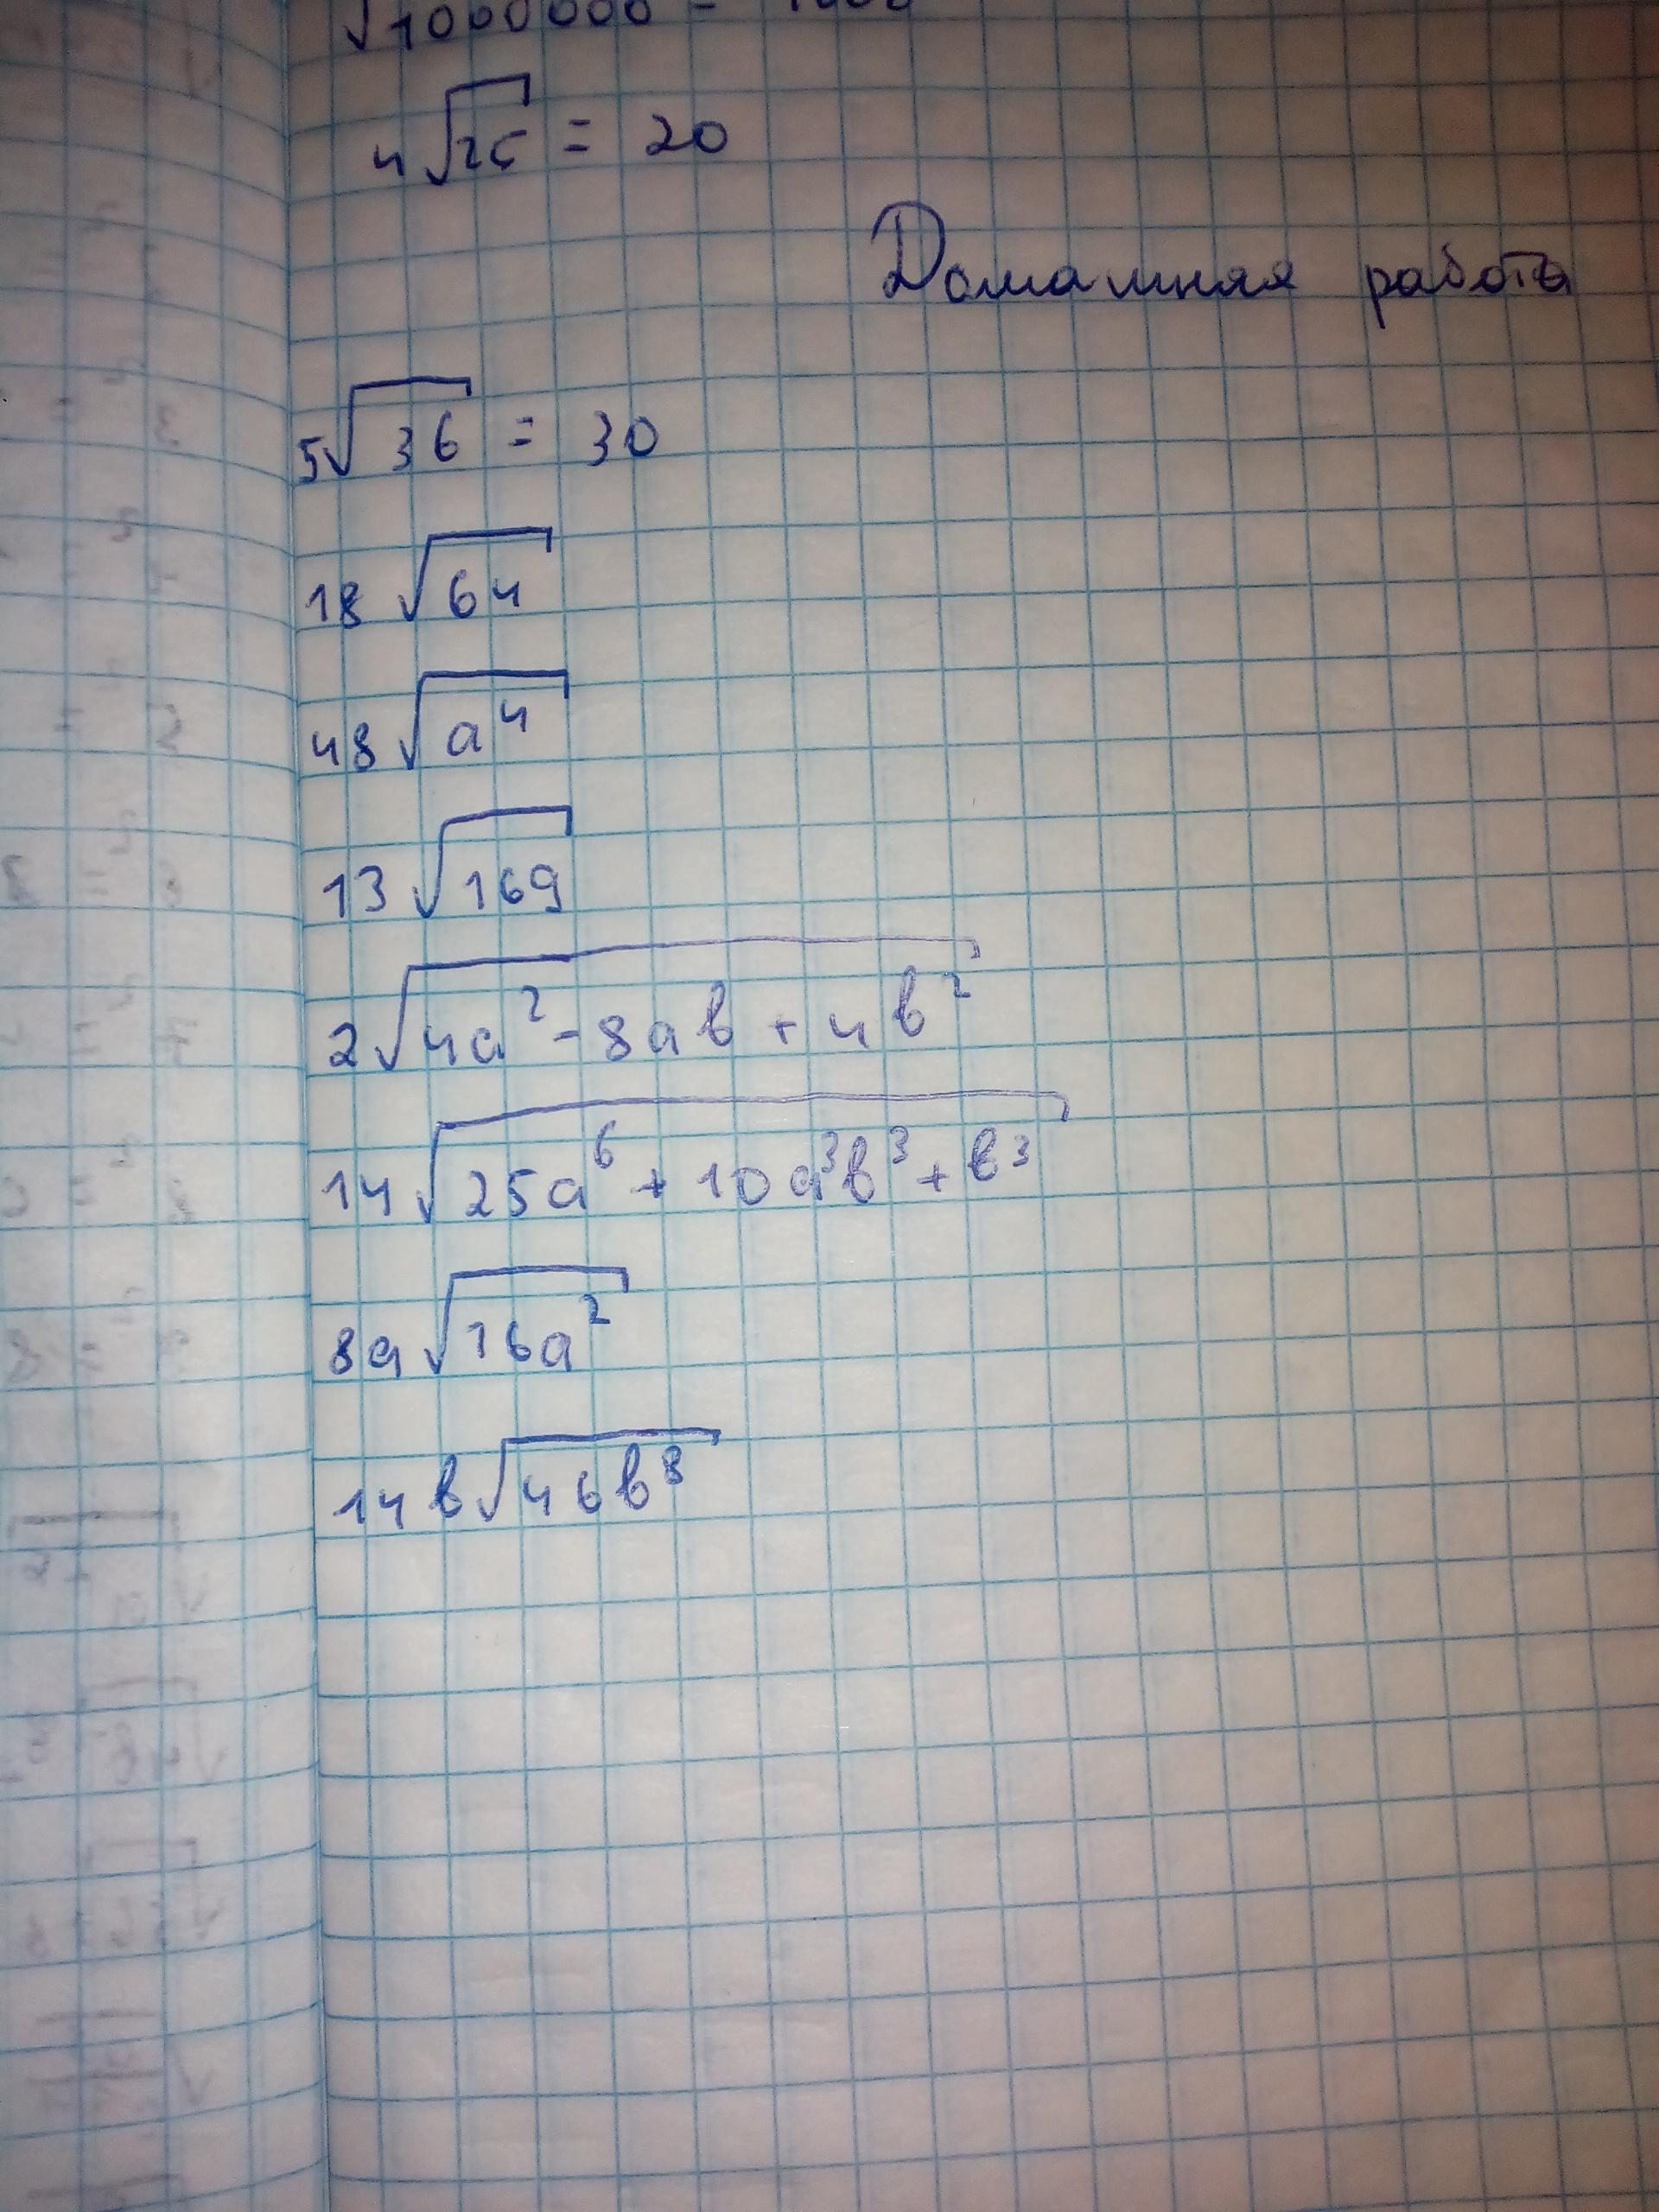 √1000000 = 1000
4√25 = 20
Домашняя работа
5√36 = 30
18√64
48√a⁴
13√169
2√4a² - 8ab + 4b²
14√25a⁶ + 10a³b³ + b³
8a√16a²
14b√46b⁸